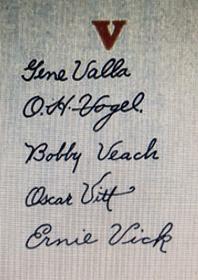 V
Gene Valla
O.H. Vogel.
Bobby Veach
Oscar Vitt
Ernie Vick